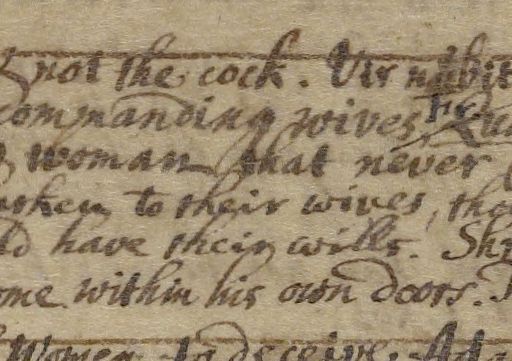 & not the cock. Vir nubit
commanding wives, Fr.
& woman that never
to their wives, tho
have their wills. Sh
ome within his own doors.
Women to deceive. Ada